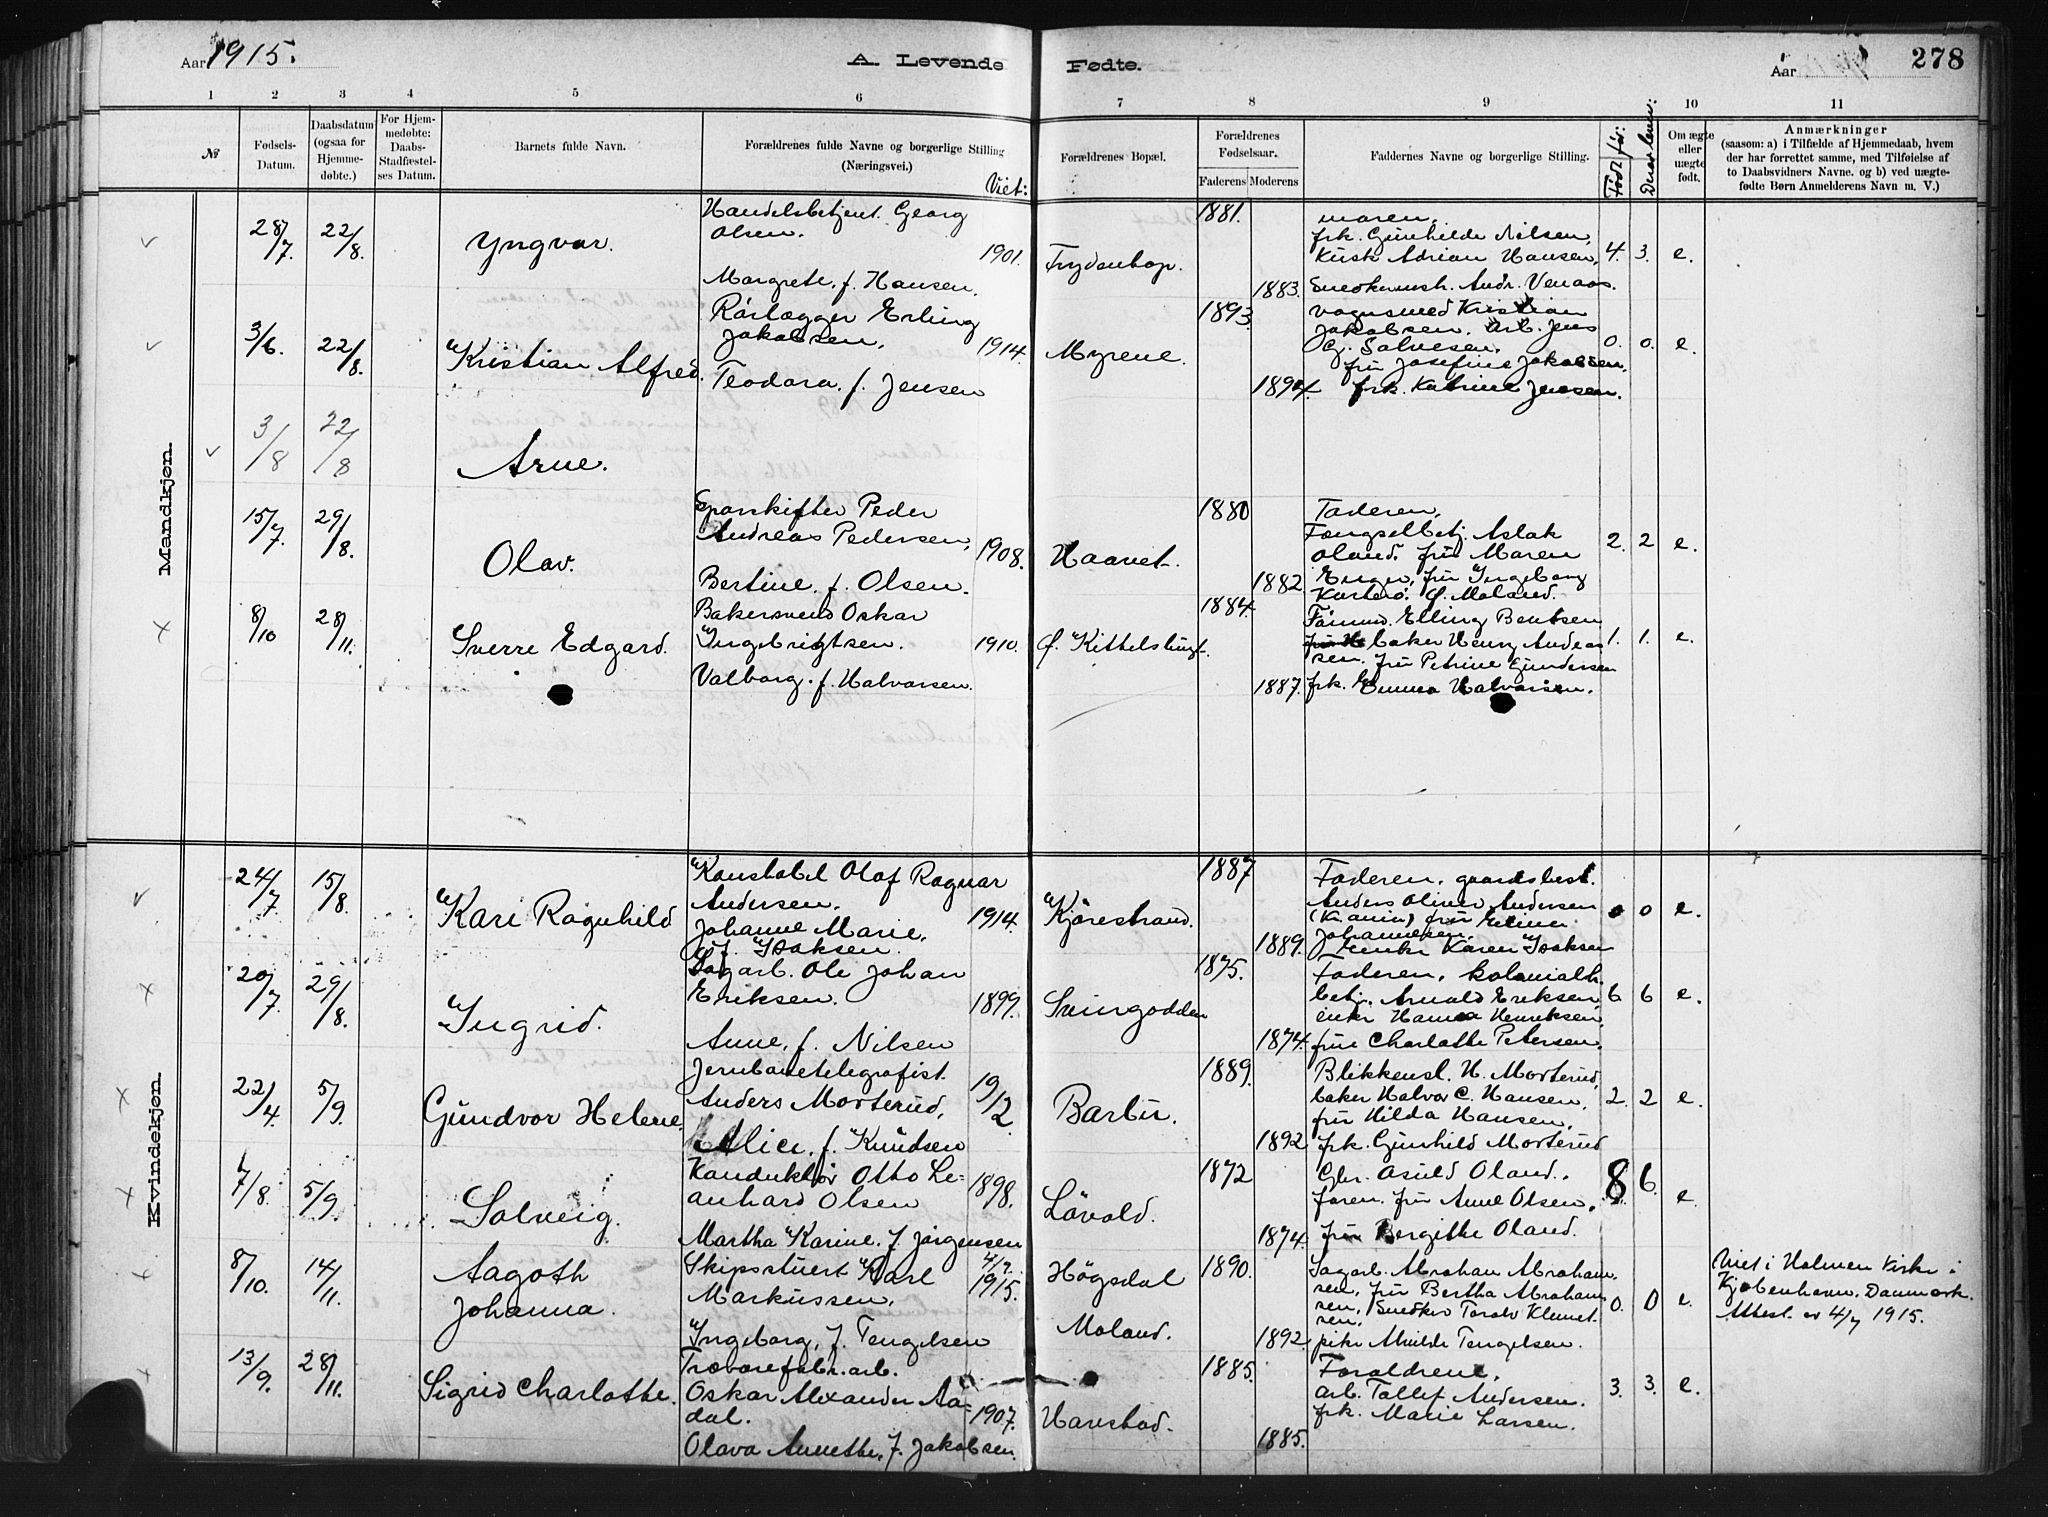 Aar 1915.
A. Levende Fødte.
Aar
278
1 2 3 4 5 6 7 8 9 10 11
№
Fødsels-
Datum.
Daabsdatum
(ogsaa for
Hjemme-
døbte.)
For Hjem-
medøbte:
Daabs-
Stadfæstel-
ses Datum.
Barnets fulde Navn.
Forældrenes fulde Navne og borgerlige Stilling
(Næringsvei.)
Viet:
Forældrenes Bopæl.
Forældrenes
Fødselsaar.
Faderens Moderens
Faddernes Navne og borgerlige Stilling.
Født før:
Derav lever:
Om ægte
eller
uægte
født.
Anmærkninger
(saasom: a) i Tilfælde af Hjemmedaab, hvem
der har forrettet samme, med Tilføielse af
to Daabsvidners Navne. og b) ved uægte-
fødte Børn Anmelderens Navn m. V.)
Mandkjøn.
28/7. 22/8. Yngvar.
Handelsbetjent Georg
Olsen.
Margrete, f. Hansen.
1901.
1881.
1883.
moren,
frk. Gunhilde Nilsen,
Kusk Adrian Hansen,
Snedkermstr. Andr. Venaas.
4. 3. e.
3/6. 22/8. Kristian Alfred.
Rørlægger Erling
Jakobsen,
Teodora, f. Jensen
1914. Myrene.
1893.
1894.
vognsmed Kristian
Jakobsen. Arb. Jens
G. Salvesen.
fru Josefine Jakobsen,
frk. Katrine Jensen.
0. 0. e.
3/8 22/8 Arne.
15/7. 29/8. Olav.
Sporskifter Peder
Andreas Pedersen,
Bertine, f. Olsen.
1908. Haavet.
1880
1882.
Faderen,
Fængselbetj. Aslak
Oland. fru Maren
Enger, fru Ingeborg
2. 2 e.
8/10 28/11. Sverre Edgard.
Bakersvend Oskar
Ingebrigtsen.
Valborg, f. Halvorsen.
1910.
1884.
1887.
Elling Bentsen
baker Henry Andreas
sen. fru Petrine Gundersen
frk. Emma Halvorsen.
1. 1. e.
Kvindekjøn.
24/7 15/8. Kari Ragnhild
Konstabel Olaf Ragnar
Andersen.
Johanne Marie,
f. Isaksen.
1914. Kjørestrand.
1887
1889.
Faderen. gaardsbest.
Anders Oliver Andersen
Johannesen.
Enke Karen Isaksen
0 0 e.
20/7 29/8. Ingrid.
Sagarb. Ole Johan
Eriksen.
Anne, f. Nilsen
1899. Svingodden
1875.
1874.
Faderen, kolonialh.
betj. Arnold Eriksen
enke Hanna Henriksen,
fru Charlotte Petersen.
6 6 e.
22/4. 5/9. Gundvor Helene.
Jernbanetelegrafist
Anders Morterud,
Alice, f. Knudsen
19/12. Barbu.
1889.
1892
Blikkensl. H. Morterud,
baker Halvor C. Hansen,
fru Hilda Hansen,
frk. Gunhild Morterud
2. 2 e.
7/8. 5/9. Solveig.
Konduktør Otto Le-
onhard Olsen
Martha Karine, f. Jørgensen
1898. Løvold.
1872
1874.
Gbr. Asuld Oland.
faren. fru Anne Olsen.
fru Bergitte Oland.
8 6. e.
8/10. 14/11. Aagoth
Johanna.
Skipsstuert Karl
Markussen,
Ingeborg, f. Tengelsen
4/7.
1915. Høgsdal
Moland.
1890.
1892.
Sagarb. Abraham Abraham.
sen, fru Bertha Abraham
sen, Snedker Toralv Klemet.
sen,
pike Tengelsen.
0. 0 e.
Viet i Holmen Kirke i
Kjøbenhavn, Danmark.
Attest av 4/7 1915.
13/9. 28/11. Sigrid Charlotte.
Trævarefabr. arb.
Oskar Alexander Aa-
dal.
Olava Annette, f. Jakobsen.
1907. Havstad.
1885.
1885.
Forældrene,
arb. Tallef Andersen.
frk. Marie Larsen.
3. 3. e.